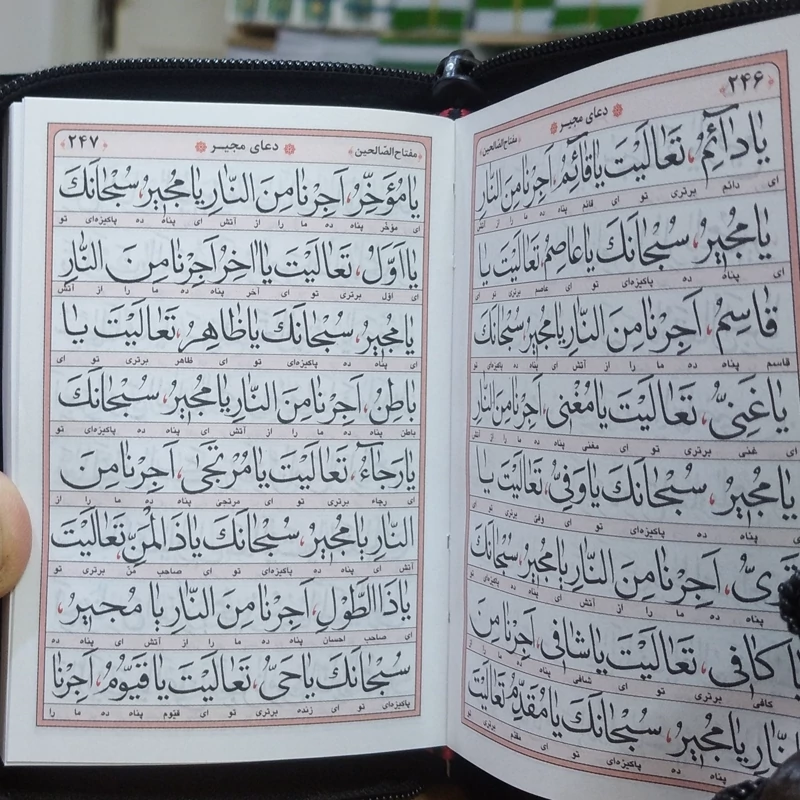 ﴿۲۴۶﴾ دعای مجیر ﴿مفتاح الصّالحین﴾
یا دآئِمُ، تَعالَیْتَ یا قآئِمُ، اَجِرْنا مِنَ النّارِ
ای دائم برتری تو ای قائم پناه ده ما را از آتش
یا مُجیرُ، سُبْحانَکَ یا عاصِمُ، تَعالَیْتَ یا
ای پناه ده پاکیزه‌ای تو ای عاصم برتری تو ای
قاسِمُ، اَجِرْنا مِنَ النّارِ یا مُجیرُ، سُبْحانَکَ
قاسم پناه ده ما را از آتش ای پناه ده پاکیزه‌ای تو
یا غَنِیُّ، تَعالَیْتَ یا مُغْنی، اَجِرْنا مِنَ النّارِ
ای غنی برتری تو ای مغنی پناه ده ما را از آتش
یا مُجیرُ، سُبْحانَکَ یا وَفِیُّ، تَعالَیْتَ یا
ای پناه ده پاکیزه‌ای تو ای وفی برتری تو ای
قَوِیُّ، اَجِرْنا مِنَ النّارِ یا مُجیرُ، سُبْحانَکَ
پناه ده ما را از آتش ای پناه ده پاکیزه‌ای تو
یا کافی، تَعالَیْتَ یا شافی، اَجِرْنا مِنَ
کافی برتری تو ای شافی پناه ده ما را از
النّارِ یا مُجیرُ، سُبْحانَکَ یا مُقَدِّمُ، تَعالَیْتَ
پناه ده پاکیزه‌ای تو ای مقدم برتری تو
﴿۲۴۷﴾ دعای مجیر ﴿مفتاح الصّالحین﴾
یا مُؤَخِّرُ، اَجِرْنا مِنَ النّارِ یا مُجیرُ، سُبْحانَکَ
ای مؤخر پناه ده ما را از آتش ای پناه ده پاکیزه‌ای تو
یا اَوَّلُ، تَعالَیْتَ یا اخِرُ، اَجِرْنا مِنَ النّارِ
ای اوّل برتری تو ای آخر پناه ده ما را از آتش
یا مُجیرُ، سُبْحانَکَ یا ظاهِرُ، تَعالَیْتَ یا
ای پناه ده پاکیزه‌ای تو ای ظاهر برتری تو ای
باطِنُ، اَجِرْنا مِنَ النّارِ یا مُجیرُ، سُبْحانَکَ
باطن پناه ده ما را از آتش ای پناه ده پاکیزه‌ای تو
یا رَجآءُ، تَعالَیْتَ یا مُرْتَجی، اَجِرْنا مِنَ
ای رجاء برتری تو ای مرتجی پناه ده ما را از
النّارِ یا مُجیرُ، سُبْحانَکَ یا ذَا الْمَنِّ، تَعالَیْتَ
آتش ای پناه ده پاکیزه‌ای تو ای صاحب منّ برتری تو
یا ذَا الطَّوْلِ، اَجِرْنا مِنَ النّارِ یا مُجیرُ،
ای صاحب احسان پناه ده ما را از آتش ای پناه ده
سُبْحانَکَ یا حَیُّ، تَعالَیْتَ یا قَیُّومُ، اَجِرْنا
پاکیزه‌ای تو ای زنده برتری تو ای قیّوم پناه ده ما را